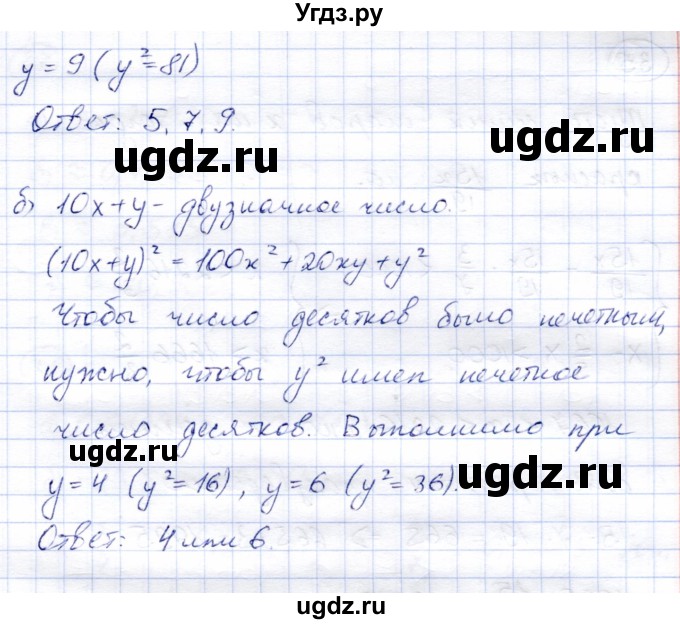 Угдз.ру
y = 9 (y²=81)
Ответ: 5, 7, 9.
ugdz.ru ugdz.ru
б) 10x+y - двузначное число.
(10x+y)² = 100x²+20xy+y²
Чтобы число десятков было нечетным,
ugdz.ru
нужно, чтобы y² имел нечетное
число десятков. Выполнимо при
ugdz.ru ugdz.ru
y=4 (y²=16), y=6 (y²=36).
Ответ: 4 или 6.
ugdz.ru